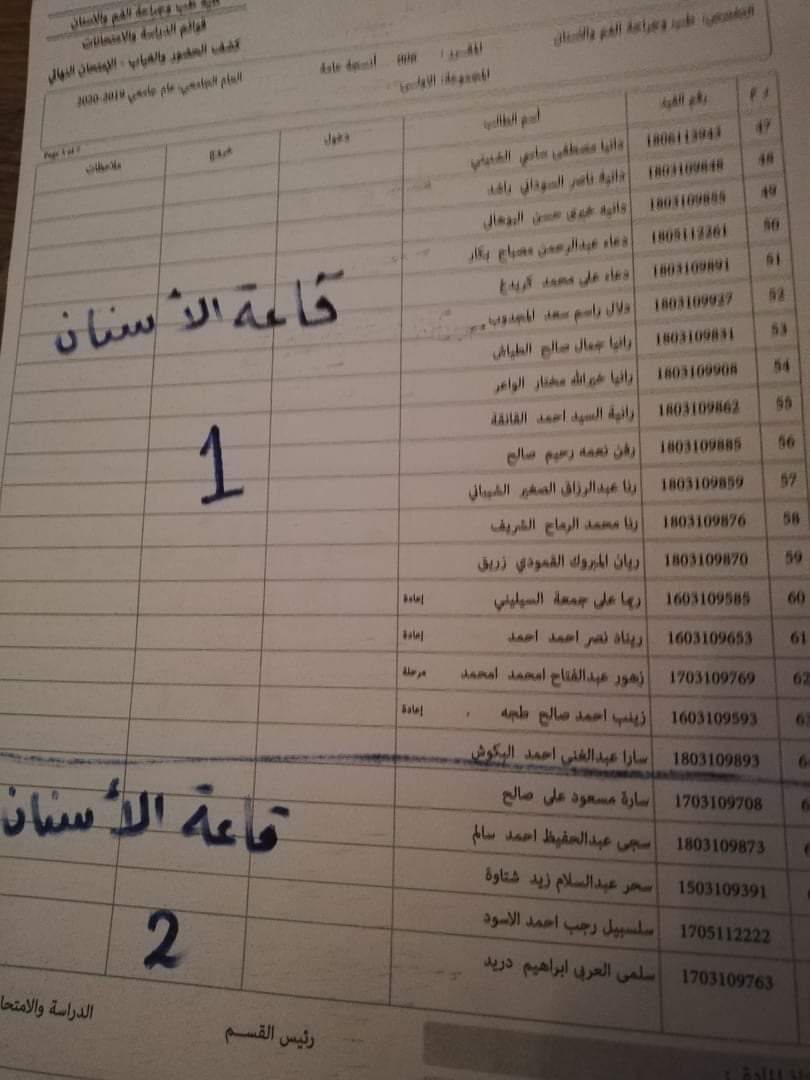 كلية طب وجراحة الفم والأسنان
قوائم الدراسة والامتحانات
كشف الحضور والغياب : الإمتحان النهائي
العام الجامعي: عام جامعي 2019-2020
التخصص: طب وجراحة الفم والأسنان
المقرر: أنسجة عامة
المجموعة: الاولى
ر م رقم القيد اسم الطالب دخول خروج ملاحظات
47 1806113943 دانيا مصطفى سادي
48 1803109848 دانية ناصر السوداني
49 1803109855 دانية حسن
50 1805112261 دعاء عبدالرحمن مصباح بكار
51 1803109891 دعاء على محمد كريدغ
52 1803109927 دلال راسم سعد المجدوب
53 1803109831 رانيا جمال صالح الطياش
54 1803109908 رانيا خيرالله مختار الواعر
55 1803109862 رانية السيد احمد
56 1803109885 نعمه رحيم صالح
57 1803109859 رنا عبدالرزاق الصغير الشيباني
58 1803109876 رنا محمد الرماح الشريف
59 1803109870 ريان المبروك القمودي زريق
60 1603109585 ريما على جمعة السيليني إعادة
61 1603109653 ريناد نصر احمد احمد إعادة
62 1703109769 زهور عبدالفتاح امحمد امحمد مرحلة
1603109593 زينب احمد صالح طجه إعادة
1803109893 سارا عبدالغني احمد البكوش
1703109708 سارة مسعود على صالح
1803109873 سجى عبدالحفيظ احمد سالم
1503109391 سحر عبدالسلام زيد شتاوة
1705112222 سلسبيل رجب احمد الاسود
1703109763 سلمى العربي ابراهيم دريد
قاعة الأسنان
1
قاعة الأسنان
2
رئيس القسم
الدراسة والامتحا